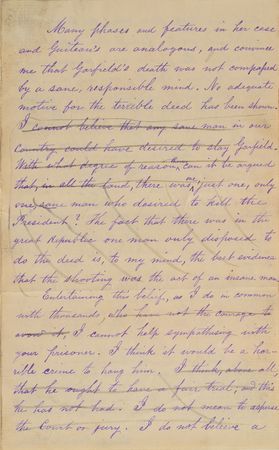 Many phases and features in her case
and Guiteau's are analogous, and convince
me that Garfield's death was not compassed
by a sane, responsible mind. No adequate
motive for the terrible deed has been shown.
I cannot believe that any sane man in our
Country could have desired to slay Garfield.
With what degree of reason can it be argued
that, in all the land, there was just one, only
one, sane man who desired to kill the
President? The fact that there was in the
great Republic one man only disposed to
do the deed is, to my mind, the best evidence
that the shooting was the act of an insane man.
Entertaining this belief, as I do in common
with thousands, who have not the courage to
avow it, I cannot help sympathising with
your prisoner. I think it would be a hor-
rible crime to hang him. I think, above all
that he ought to have a fair trial, and this
he has not had. I do not mean to
the Court or jury. I do not believe a